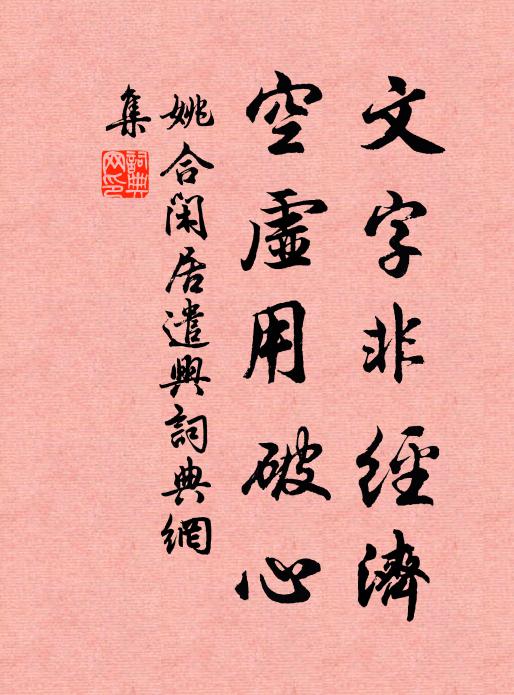 文字非經濟
空虛用破心
姚合閑居遣興詞典網
集
詞典
网印